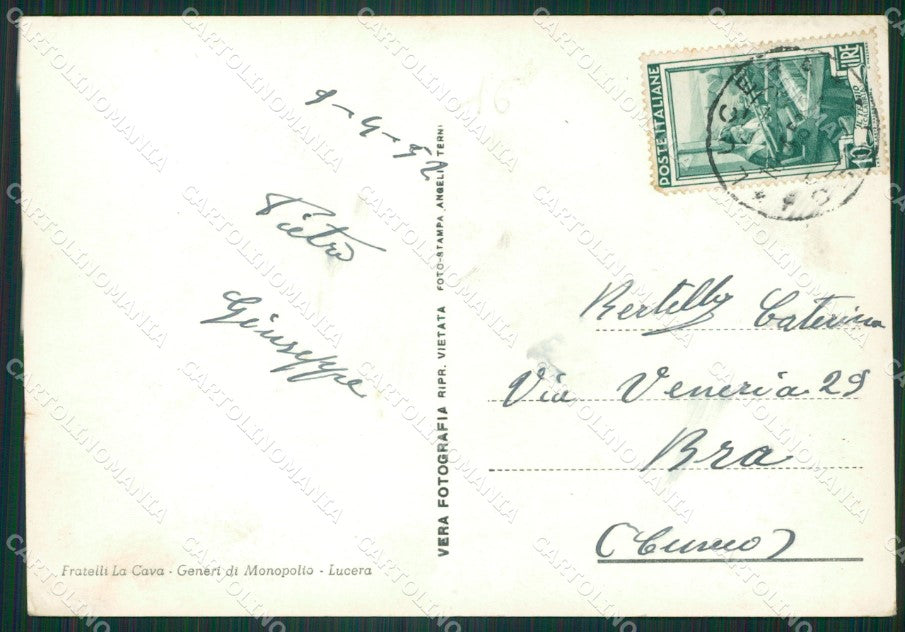 Pietro
Giuseppe
Fratelli La Cava - Generi di Monopolio - Lucera
VERA FOTOGRAFIA RIPR. VIETATA FOTO-STAMPA ANGELI TERNI
POSTE ITALIANE
10 LIRE
Bertello Caterina
Via Veneria 29
Bra
(Cuneo)
CARTOLINOMANIA